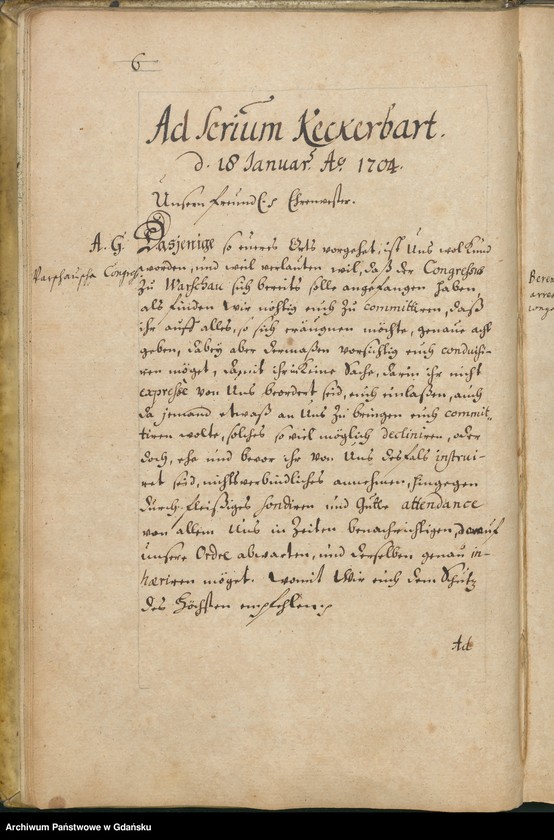 6
Ad Scrium Keckerbart.
d. 18 Januar. Ao. 1704.
Unsern freundl. Ehrenvester.
A. G. Dasjenige so eures Orts vorgehet, ist Uns wol kund
Warschausche Congress worden, und weil verlauten wil, daß der Congressus
zu Warschau sich bereits solle angefangen haben,
als finden Wir nöhtig euch zu committiren, daß
ihr auff alles, so sich eräugnen möchte, genaue acht
geben, dabey aber dermaßen vorsichtig euch conduisi-
ren möget, damit ihr in keine Sache, darin ihr nicht
expresse von Uns beordert seid, euch einlaßen, auch
da jemand etwaß an Uns zu bringen euch commit-
tiren wolte, solches so viel möglich decliniren, oder
doch, ehe und bevor ihr von Uns desfals instrui-
ret seid, nichts verbindliches annehmen, hingegen
durch fleißiges sondiren und Gutte attendance
von allem Uns in Zeiten benachrichtigen, darauf
unsere Ordre abwarten, und derselben genau in-
hæriren möget. Womit Wir euch dem Schutz
des Höchsten empfehlen.
Ad
arre
Archiwum Państwowe w Gdańsku